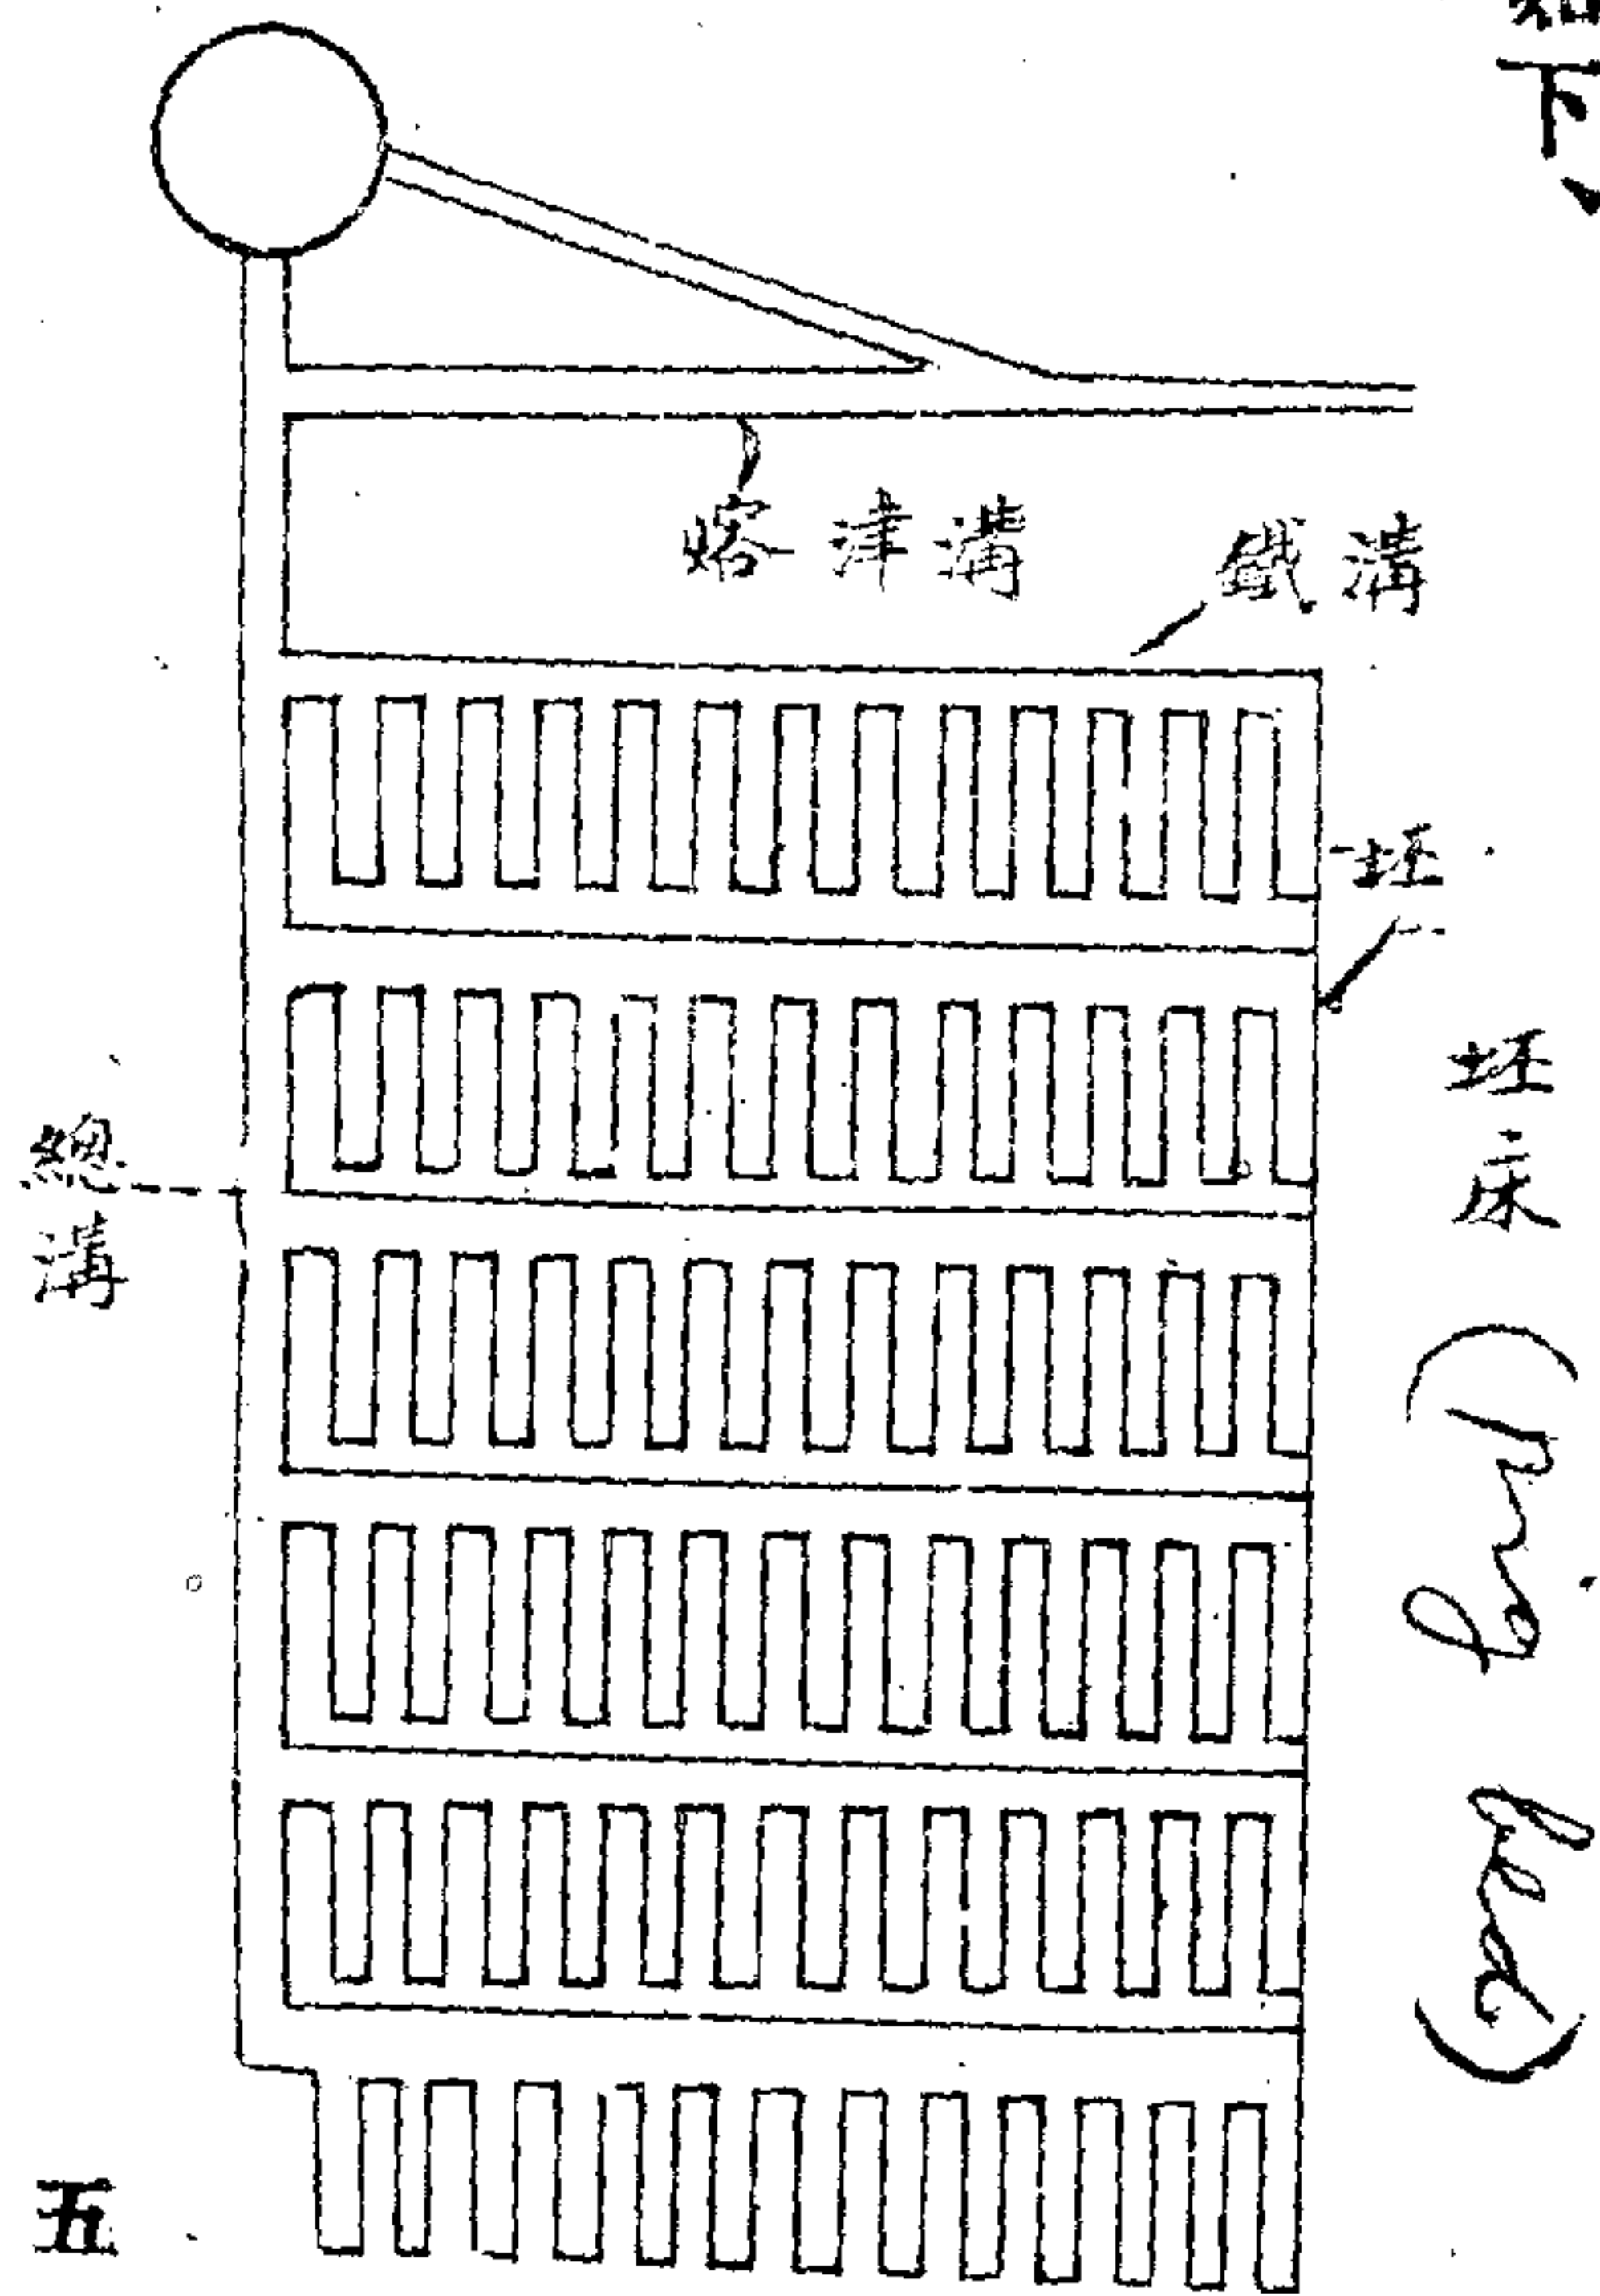 下、
熔津溝
鐵溝
坯
坯床 (pig bed)
總溝
五